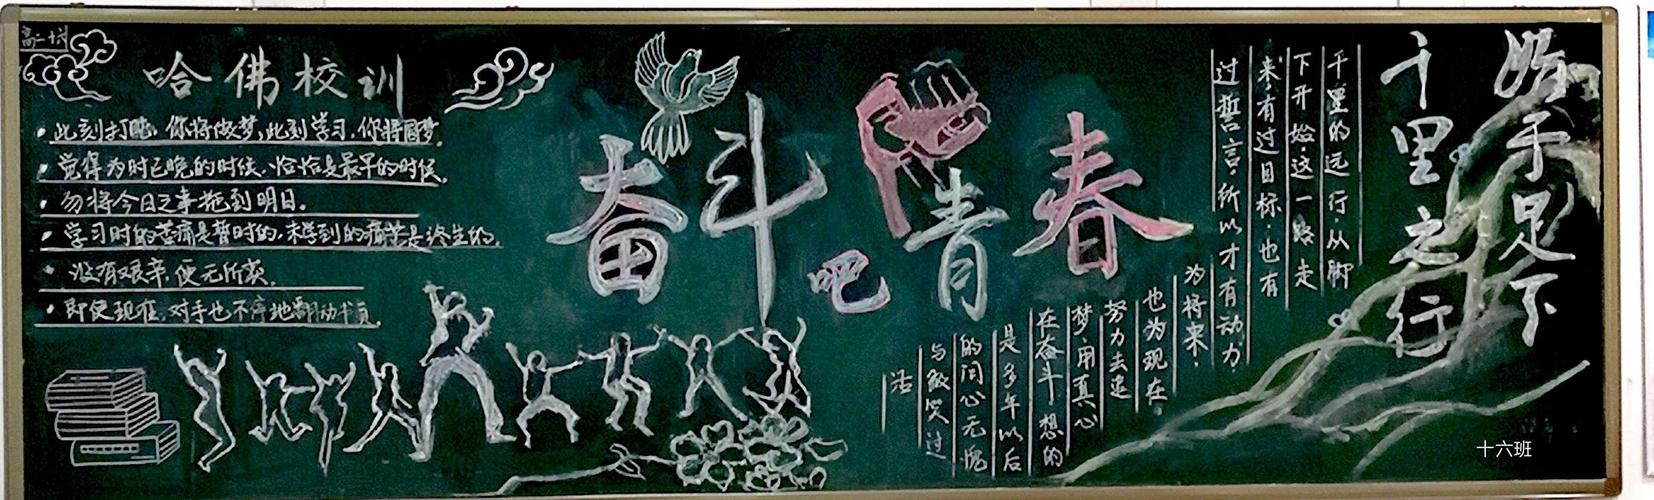 高二十六
哈佛校训
·此刻打盹,你将做梦,此刻学习,你将圆梦。
·觉得为时已晚的时候,恰恰是最早的时候。
·勿将今日之事拖到明日。
·学习时的苦痛是暂时的,未学到的痛苦是终生的。
·没有艰辛,便无所获。
·即使现在,对手也不停地翻动书页。
奋斗吧青春
千里之行
始于足下
千里的远行,从脚
下开始,这一路走
来,有过目标,也有
过誓言,所以才有动力,
为将来,
也为现在,
努力去追
梦,用真心
在奋斗,想的
是多年以后
的问心无愧
与敢笑过
活
十六班